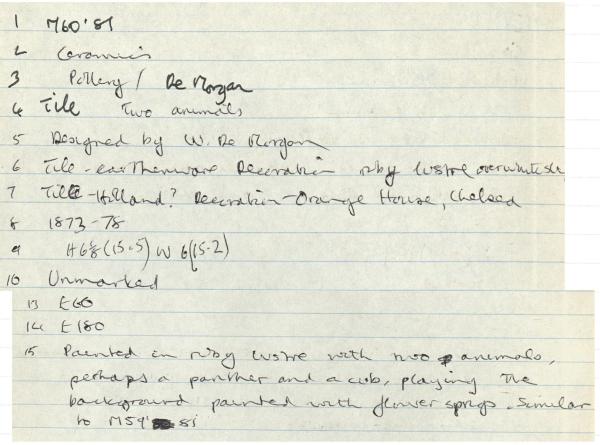 1 M60'81
2 Ceramics
3 Pottery / De Morgan
4 Tile Two animals
5 Designed by W. De Morgan
6 Tile - earthenware Decoration ruby lustre over white
7 Tile - Holland? Decoration - Orange House, Chelsea
8 1873-78
9 H 6⅛ (15.5) W 6 (15.2)
10 Unmarked
13 E60
14 E180
15 Painted in ruby lustre with two animals,
perhaps a panther and a cub, playing the
background painted with flower sprigs. Similar
to M59' 81